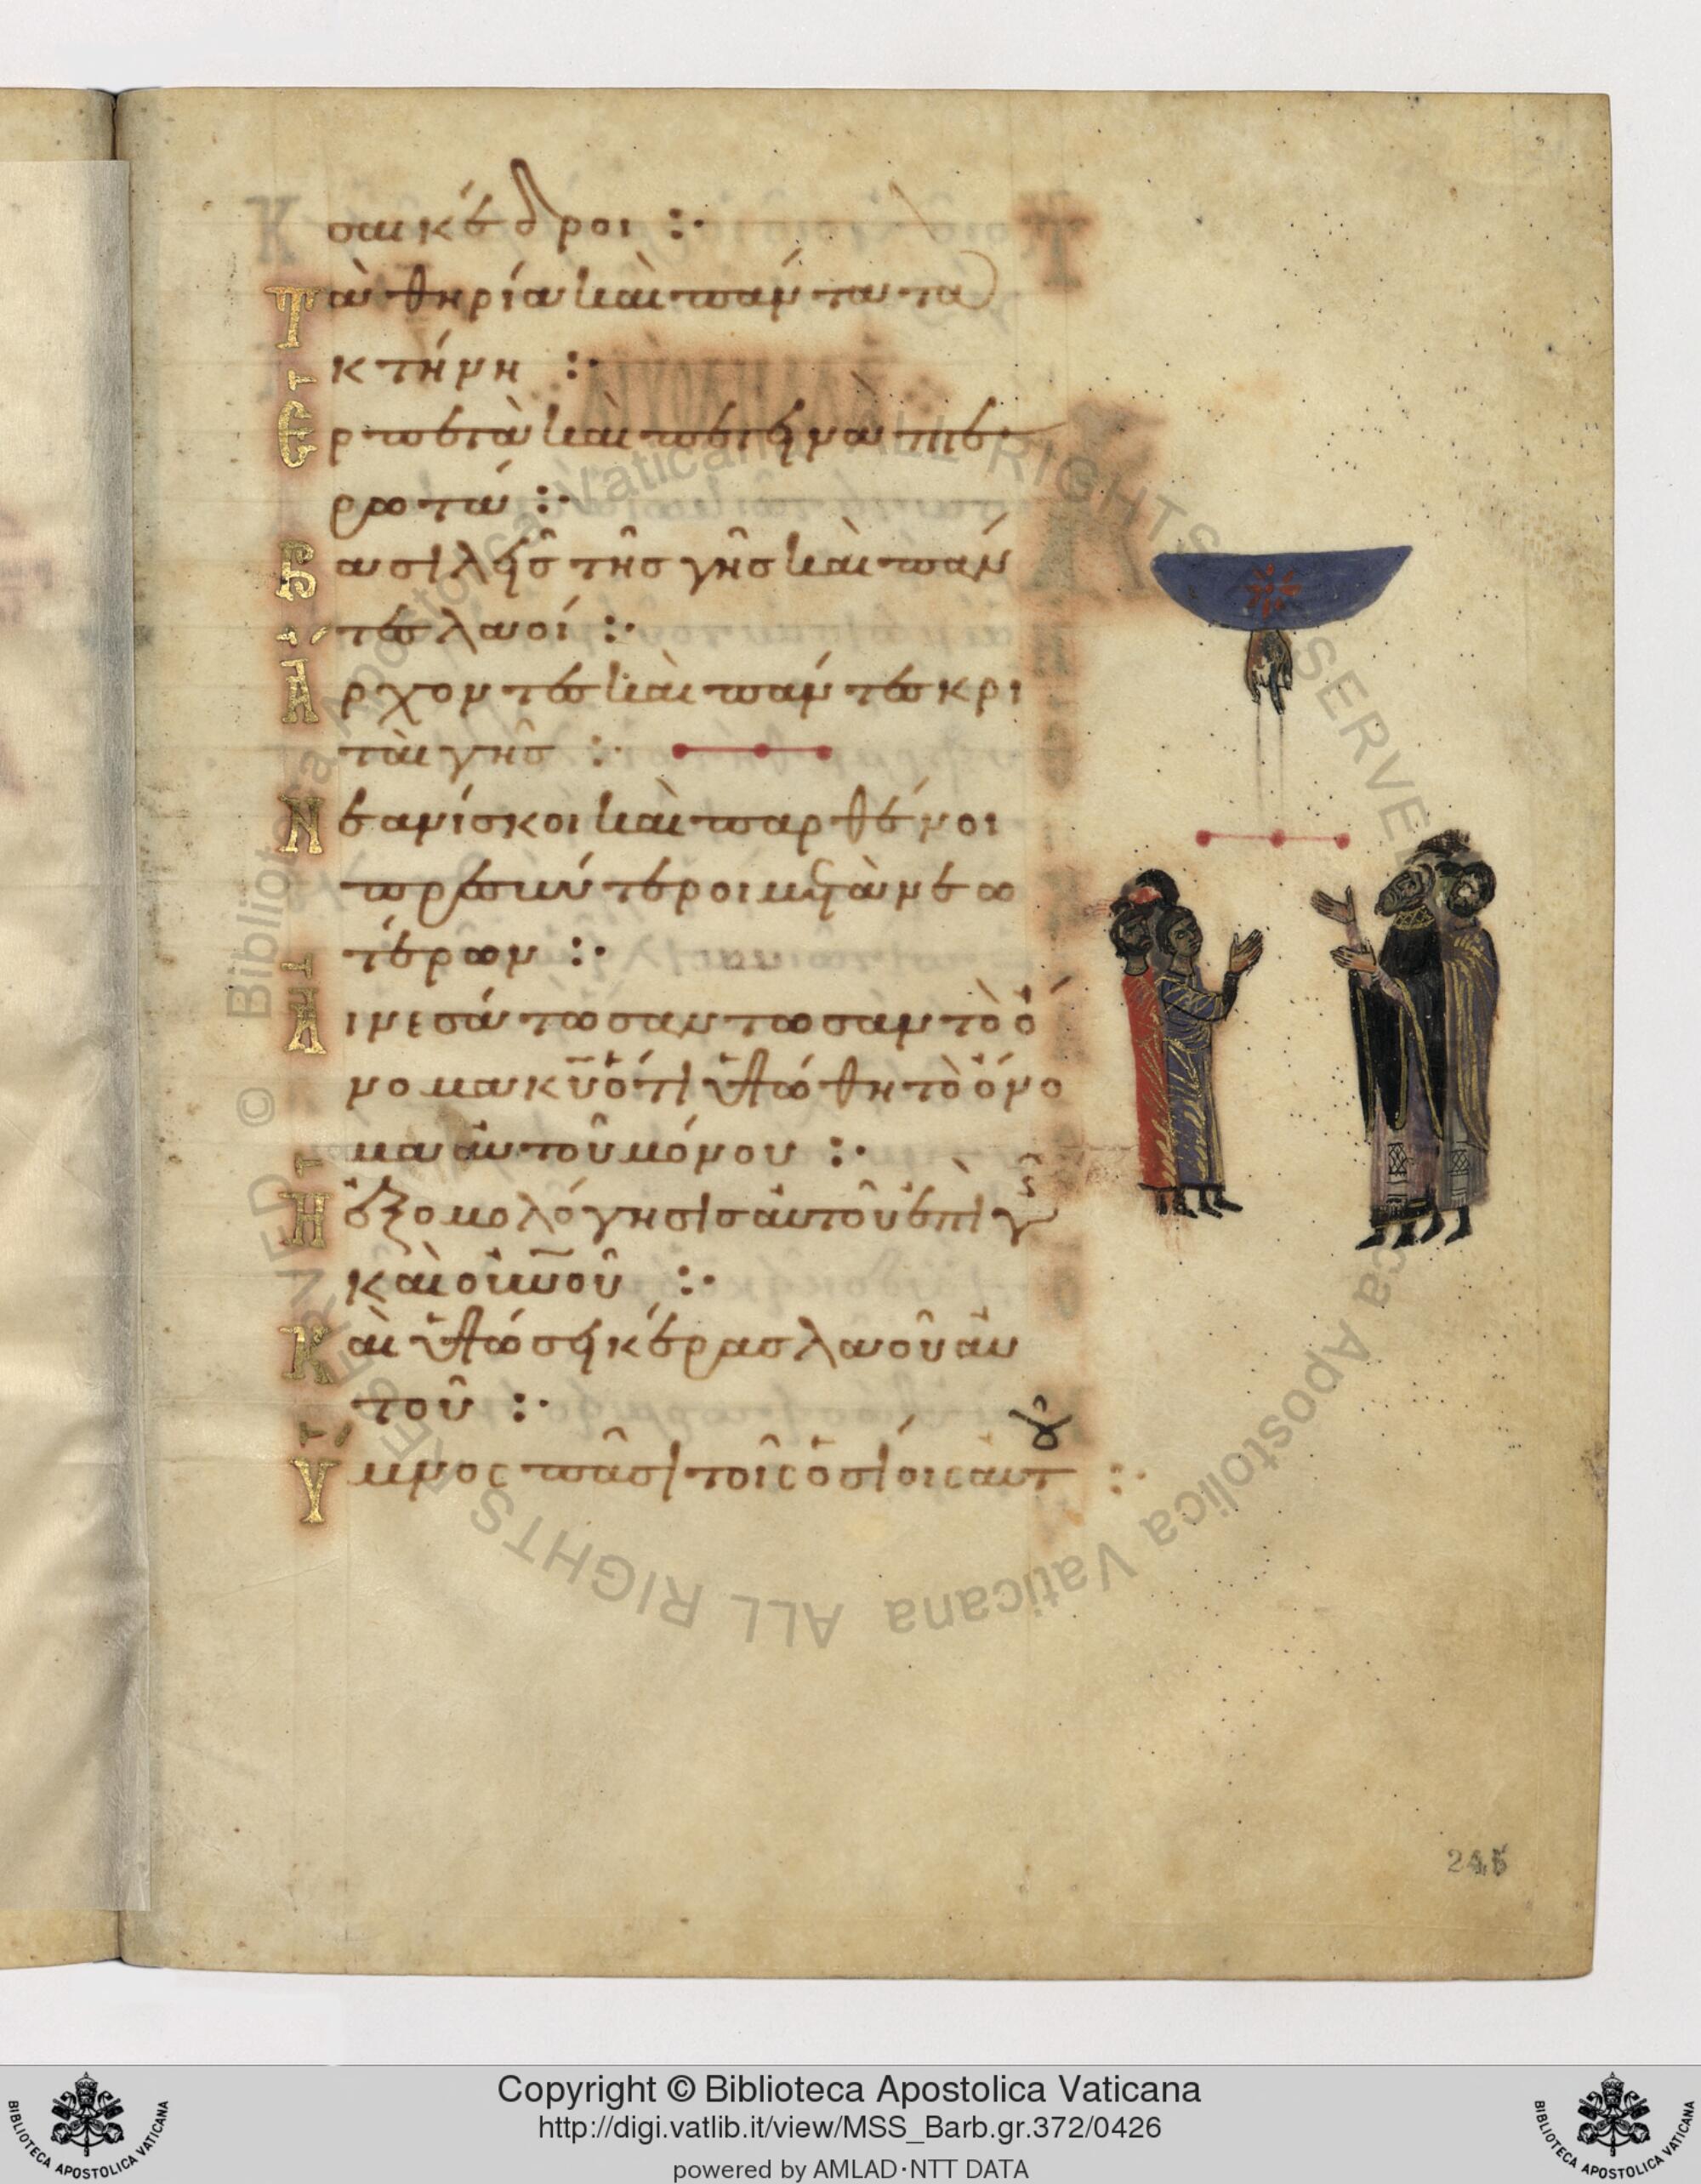 σαι κέδροι :·
Τὰ θηρία καὶ πάντα τὰ
κτήνη :·
Ἑρπετὰ καὶ πετεινὰ πτε
ρωτά :·
Βασιλεῖς τῆς γῆς καὶ πάν
τες λαοί :·
Ἄρχοντες καὶ πάντες κρι
ταὶ γῆς :·
Νεανίσκοι καὶ παρθένοι
πρεσβύτεροι μετὰ νεω
τέρων :·
Αἰνεσάτωσαν τὸ ὄ
νομα κ̅υ̅ ὅτι ὑψώθη τὸ ὄνο
μα αὐτοῦ μόνου :·
Ἡ ἐξομολόγησις αὐτοῦ ἐπὶ γῆς
καὶ οὐ̅ν̅οῦ :·
Καὶ ὑψώσει κέρας λαοῦ αὐ
τοῦ :·
Ὕμνος πᾶσι τοῖς ὁσίοις αὐτοῦ :·
245
© Biblioteca Apostolica Vaticana ALL RIGHTS RESERVED
© Biblioteca Apostolica Vaticana ALL RIGHTS RESERVED
BIBLIOTECA APOSTOLICA VATICANA
Copyright © Biblioteca Apostolica Vaticana
http://digi.vatlib.it/view/MSS_Barb.gr.372/0426
powered by AMLAD·NTT DATA
BIBLIOTECA APOSTOLICA VATICANA